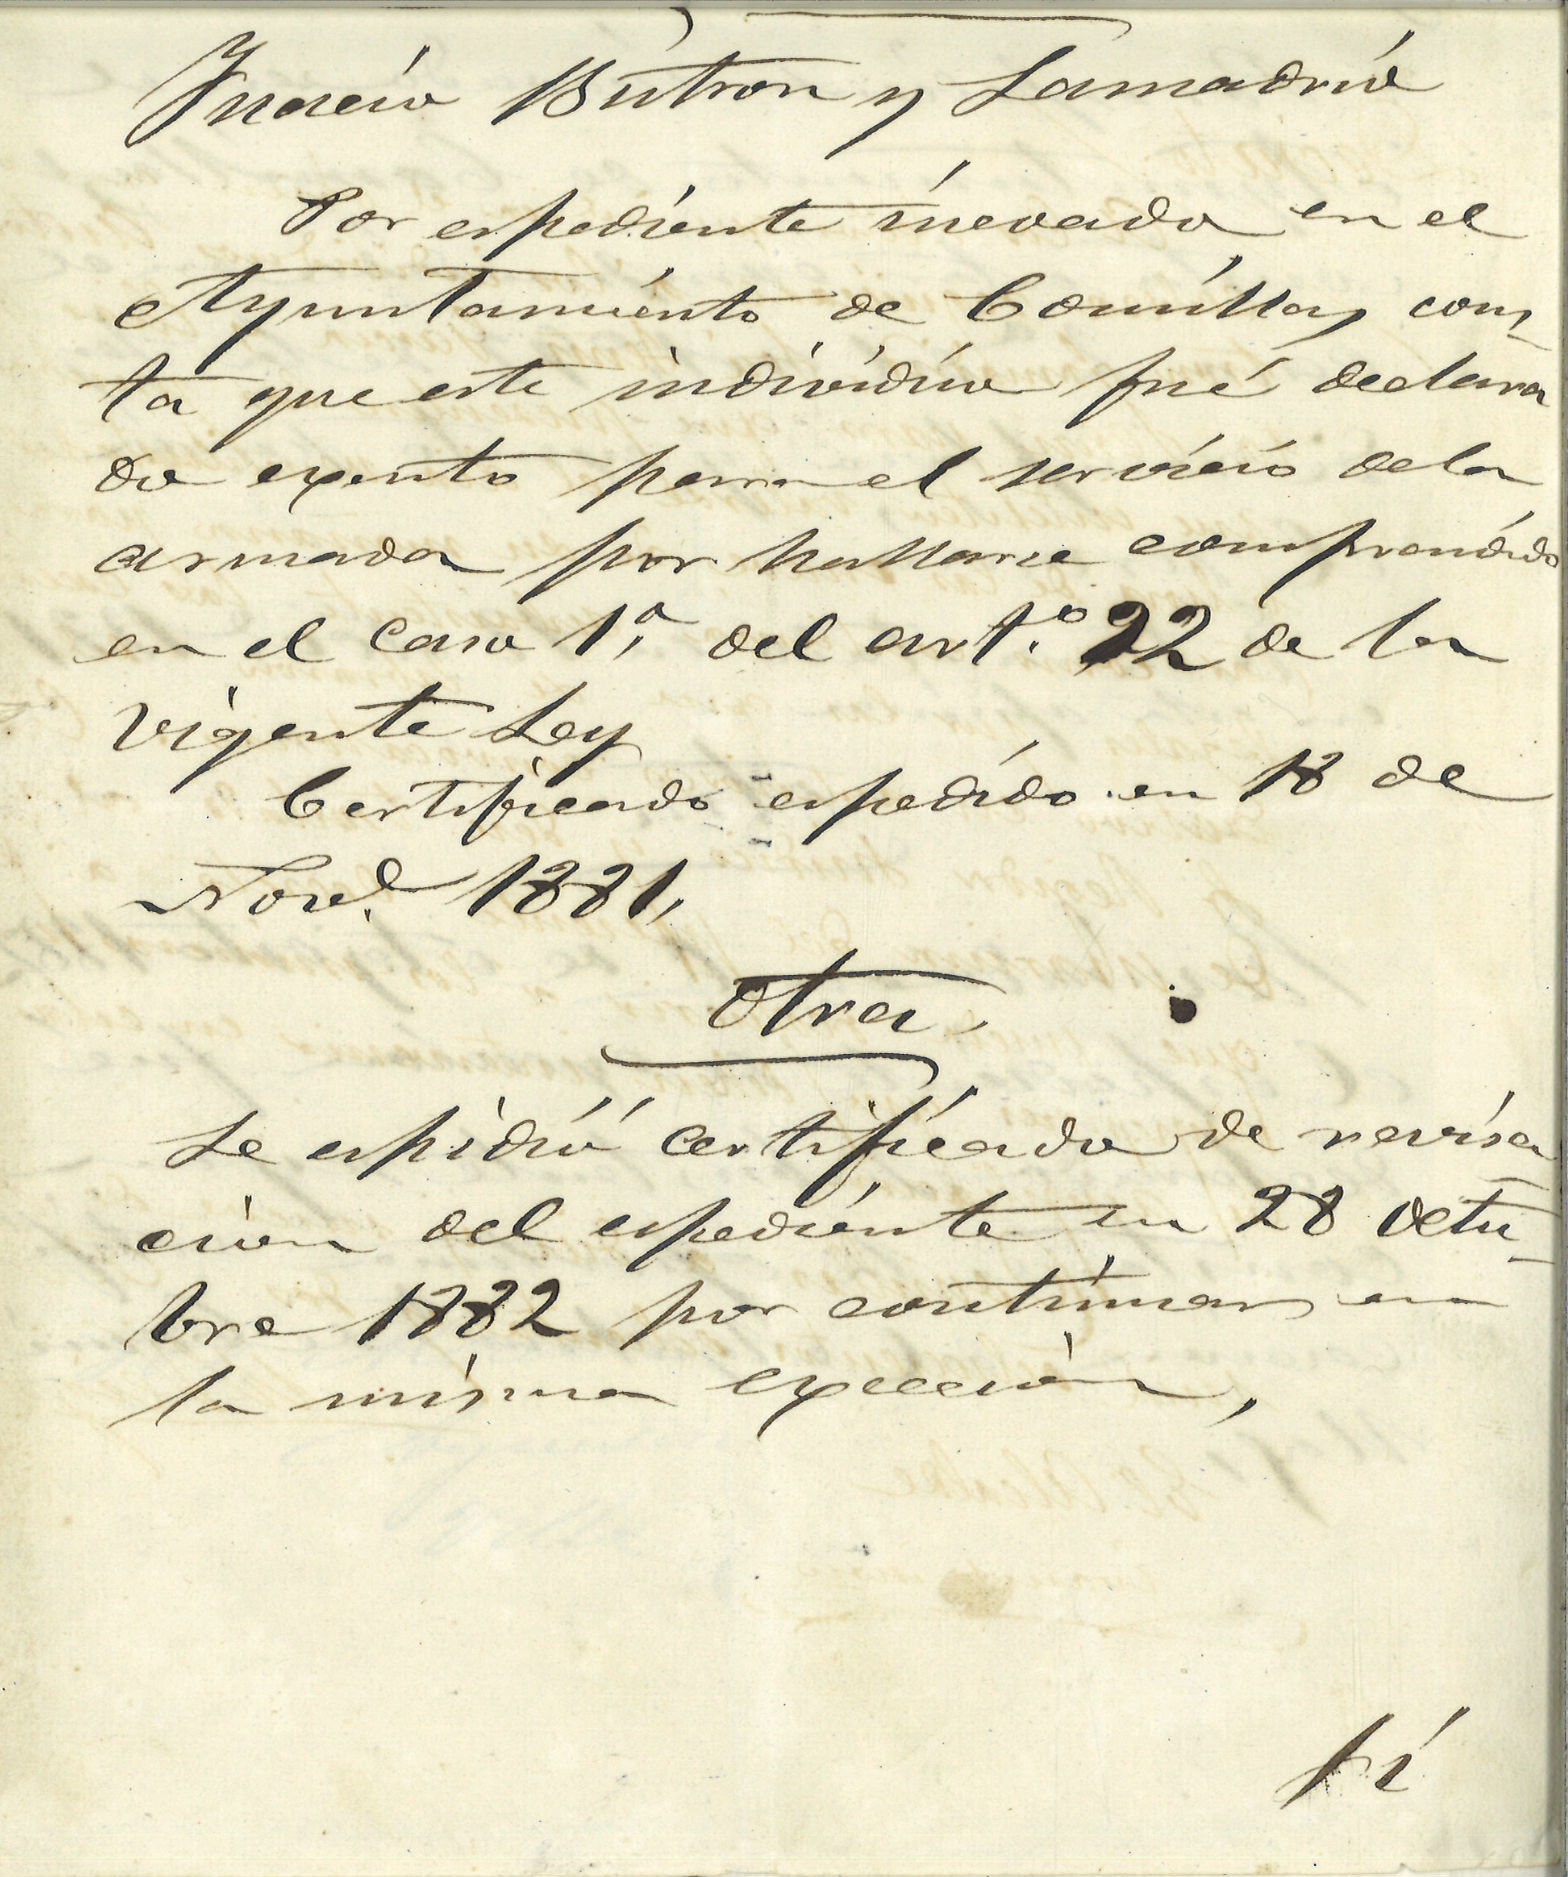 Ignacio Butron y Lamadrid
Por espediente incoado en el
Ayuntamiento de Comillas, cons-
ta que este individúo fué declara
do exento para el servicio de la
armada por hallarse comprendido
en el caso 1.º del art.º 22 de la
vigente Ley
Certificado espedido en 18 de
Nov.e 1881,
Otra
Se espidió certificado de revisa-
cion del espediente en 28 Octu-
bre 1882 por continuar en
la misma exección,